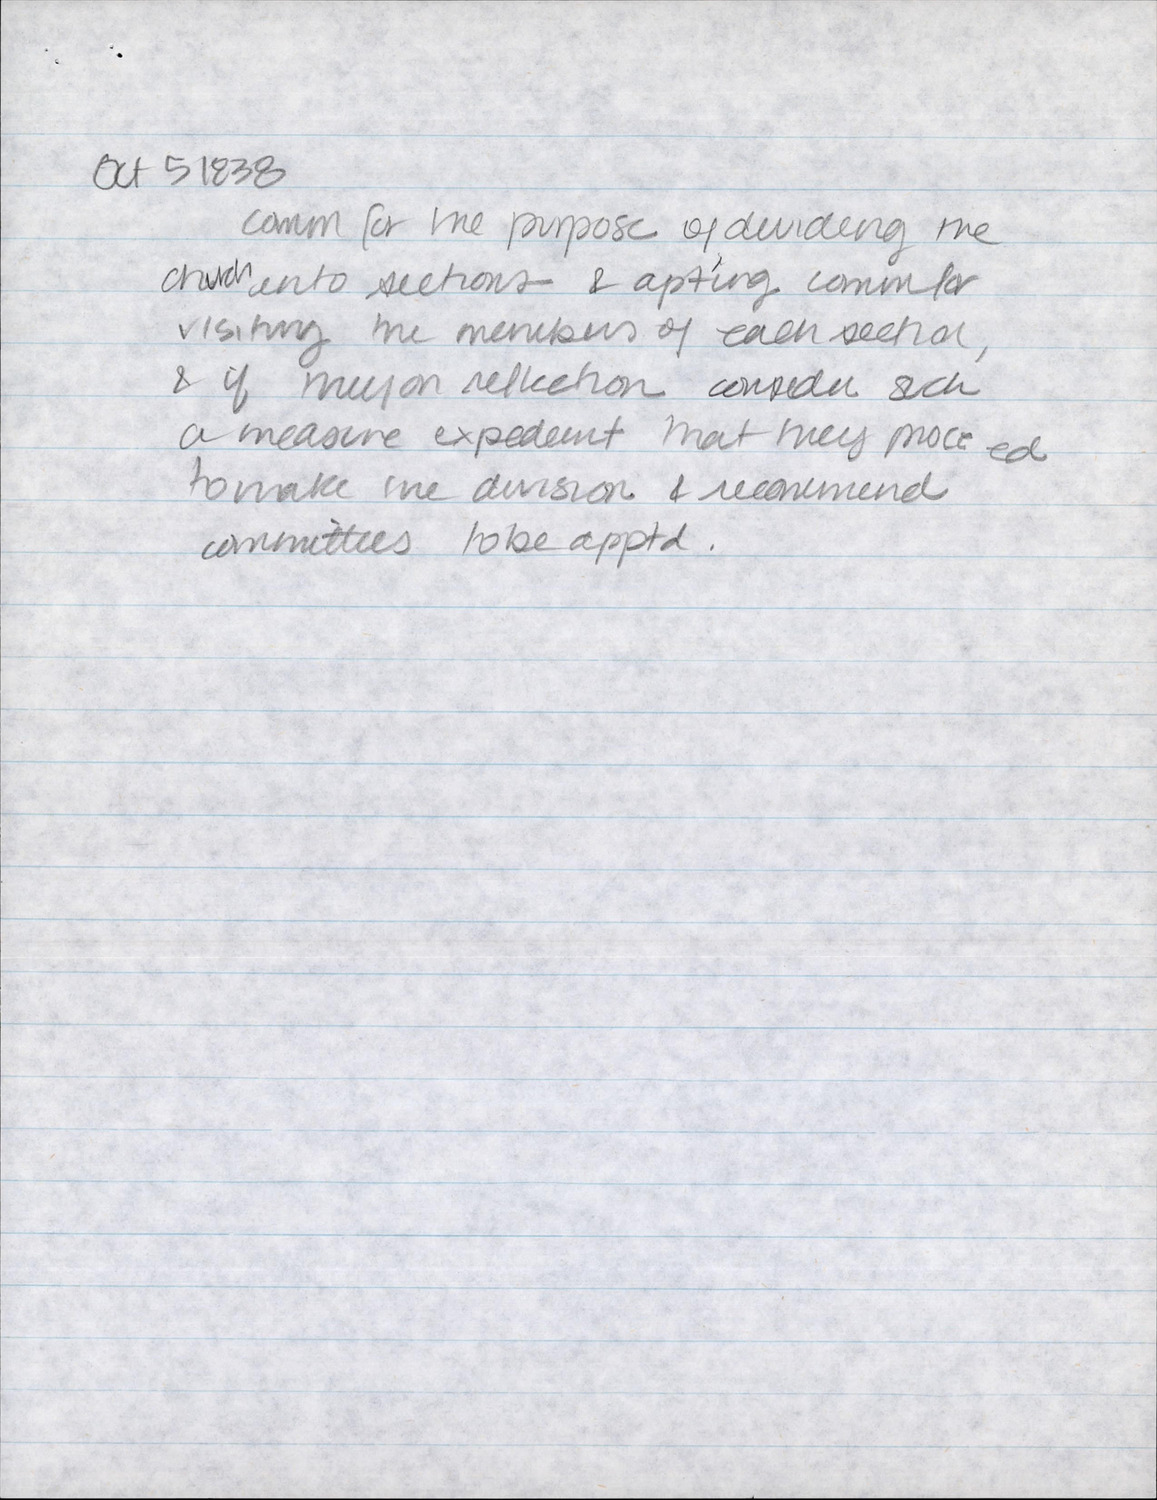 Oct 5 1838
comm for the purpose of dividing the
church into sections & apting comm for
visiting the members of each section,
& if they on reflection consider such
a measure expedient that they proceed
to make the division & recommend
committees to be apptd.